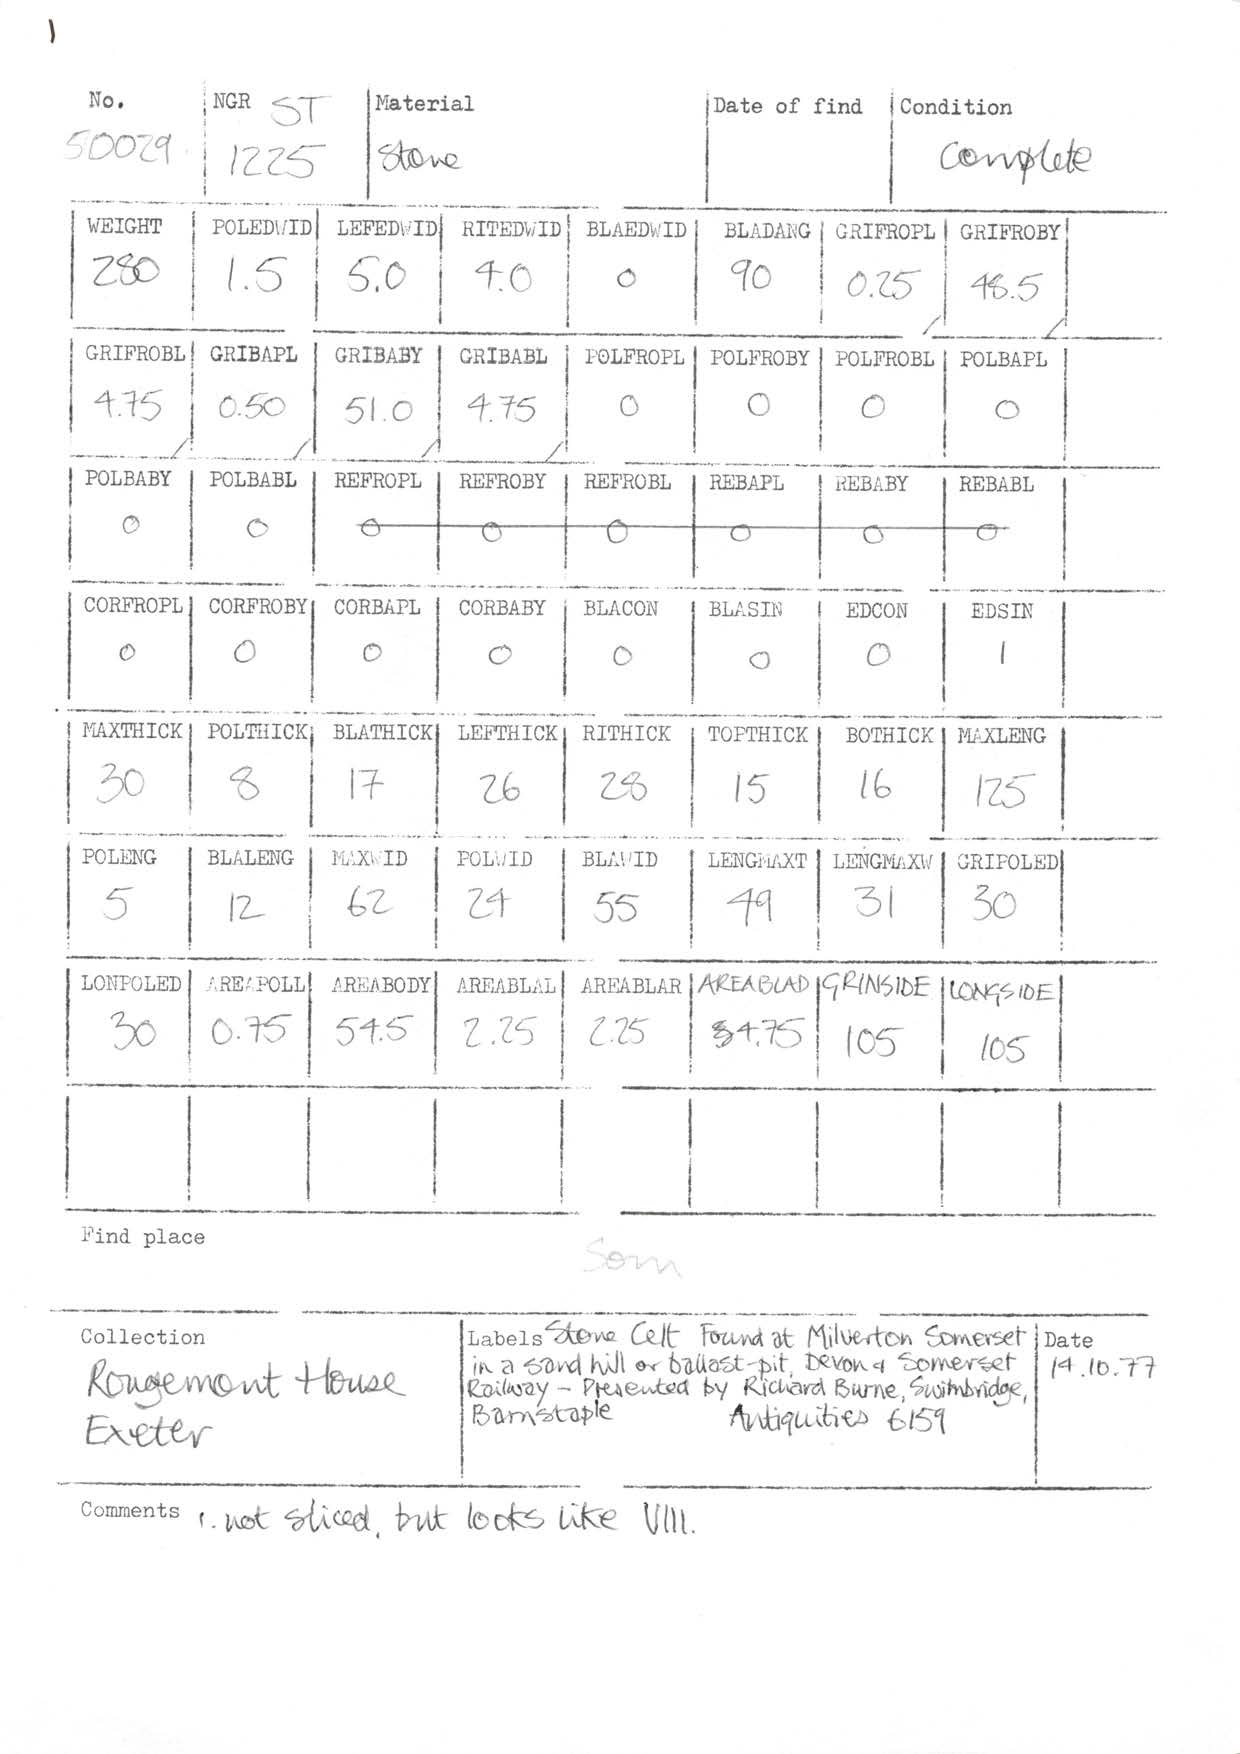 1
No. NGR ST Material Date of find Condition
50029 1225 Stone Complete
WEIGHT POLEDWID LEFEDWID RITEDWID BLAEDWID BLADANG GRIFROPL GRIFROBY
280 1.5 5.0 4.0 0 90 0.25 48.5
GRIFROBL GRIBAPL GRIBABY GRIBABL POLFROPL POLFROBY POLFROBL POLBAPL
4.75 0.50 51.0 4.75 0 0 0 0
POLBABY POLBABL REFROPL REFROBY REFROBL REBAPL REBABY REBABL
0 0 0 0 0 0 0 0
CORFROPL CORFROBY CORBAPL CORBABY BLACON BLASIN EDCON EDSIN
0 0 0 0 0 0 0 1
MAXTHICK POLTHICK BLATHICK LEFTHICK RITHICK TOPTHICK BOTHICK MAXLENG
30 8 17 26 28 15 16 125
POLENG BLALENG MAXWID POLWID BLAWID LENGMAXT LENGMAXW GRIPOLED
5 12 62 24 55 49 31 30
LONPOLED AREAPOLL AREABODY AREABLAL AREABLAR AREABLAD GRINSIDE LONGSIDE
30 0.75 54.5 2.25 2.25 4.75 105 105
Find place
Som
Collection Labels Stone Celt Found at Milverton Somerset Date
in a sand hill or ballast-pit, Devon & Somerset 14.10.77
Rougemont House Railway – Presented by Richard Burne, Swimbridge,
Exeter Barnstaple Antiquities 6159
Comments 1. not sliced, but looks like VIII.